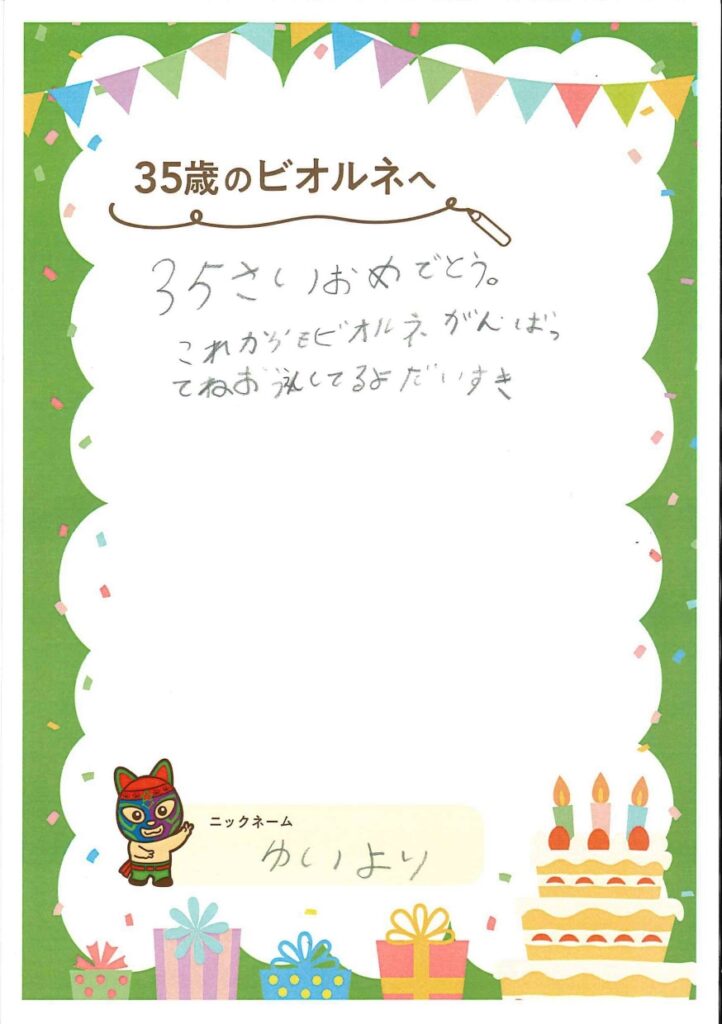 35歳のビオルネへ
35さいおめでとう。
これからもビオルネがんばっ
てねお してるよだいすき
ニックネーム
ゆいより